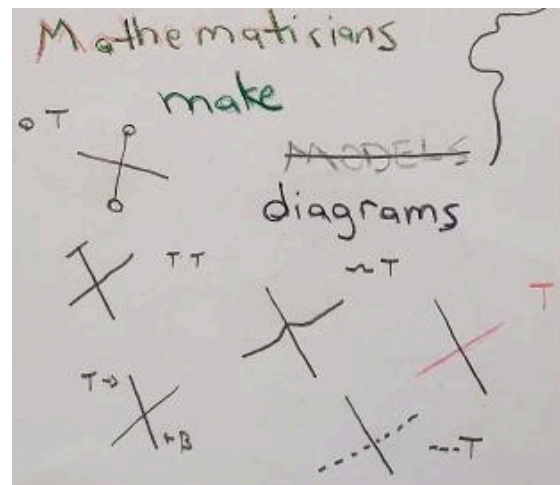 Mathematicians
make
MODELS
diagrams
o T
T T
~ T
T
T →
← B
--- T